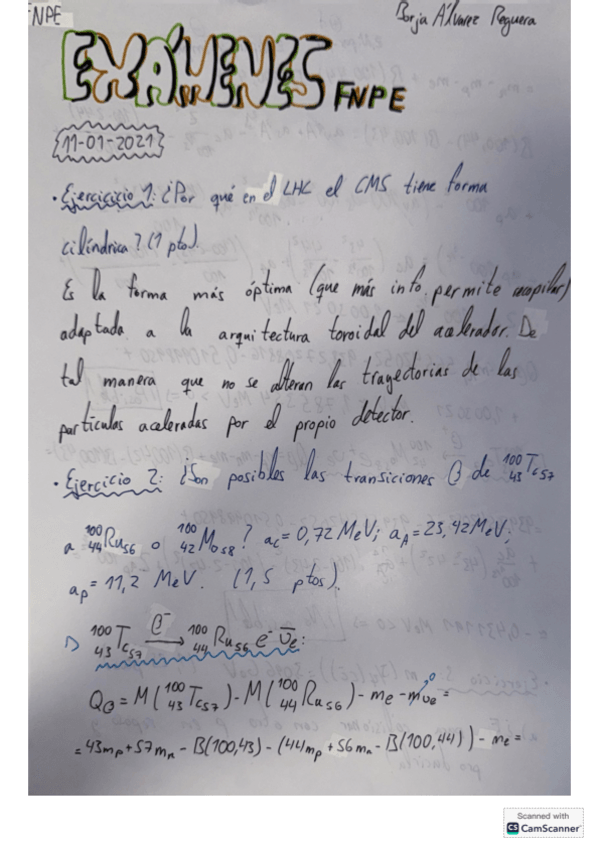 FNPE
Borja Álvarez Reguera
EXÁMENES FNPE
11-01-2021
· Ejercicicio 1: ¿Por qué en el LHC el CMS tiene forma
cilíndrica? (1 pto).
Es la forma más óptima (que más info. permite recopilar)
adaptada a la arquitectura toroidal del acelerador. De
tal manera que no se alteran las trayectorias de las
partículas aceleradas por el propio detector.
· Ejercicio 2: ¿Son posibles las transiciones β de ¹⁰⁰₄₃Tc₅₇
a ¹⁰⁰₄₄Ru₅₆ o ¹⁰⁰₄₂Mo₅₈? a_c = 0,72 MeV; a_A = 23,42 MeV;
a_p = 11,2 MeV. (1,5 ptos).
1) ¹⁰⁰₄₃Tc₅₇ β⁻→ ¹⁰⁰₄₄Ru₅₆ e⁻ ν̄e:
Q_β = M(¹⁰⁰₄₃Tc₅₇) - M(¹⁰⁰₄₄Ru₅₆) - me - mνe⁰ =
= 43mp + 57mn - B(100,43) - (44mp + 56mn - B(100,44)) - me =
Scanned with
CS CamScanner